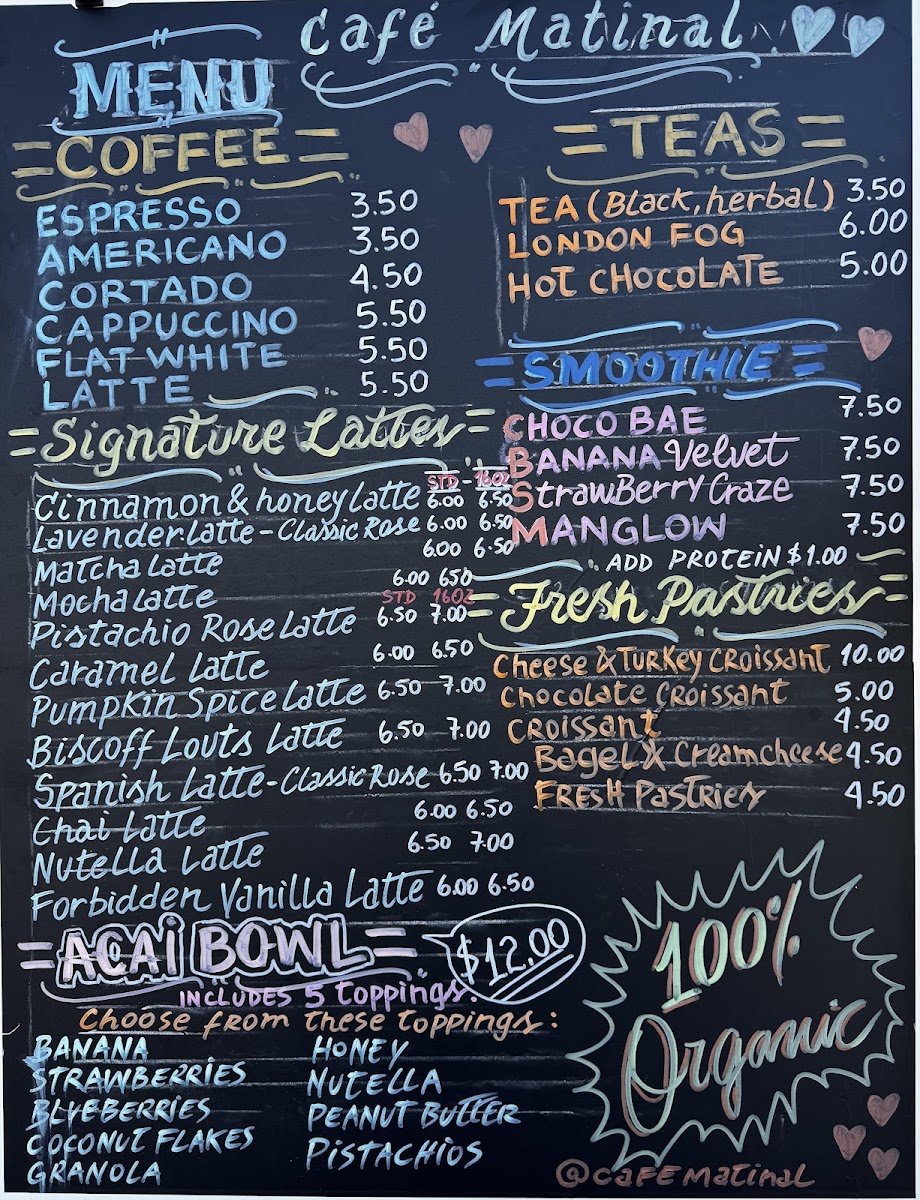 Café Matinal
MENU
COFFEE
ESPRESSO 3.50
AMERICANO 3.50
CORTADO 4.50
CAPPUCCINO 5.50
FLAT WHITE 5.50
LATTE 5.50
Signature Lattes
STD - 16OZ
Cinnamon & honey Latte 6.00 6.50
Lavender Latte - Classic Rose 6.00 6.50
Matcha Latte 6.00 6.50
Mocha Latte 6.00 6.50
STD 16OZ
Pistachio Rose Latte 6.50 7.00
Caramel Latte 6.00 6.50
Pumpkin Spice Latte 6.50 7.00
Biscoff Louts Latte 6.50 7.00
Spanish Latte - Classic Rose 6.50 7.00
Chai Latte 6.00 6.50
Nutella Latte 6.50 7.00
Forbidden Vanilla Latte 6.00 6.50
ACAI BOWL $12.00
INCLUDES 5 toppings.
Choose from these toppings:
BANANA
STRAWBERRIES
BLUEBERRIES
COCONUT FLAKES
GRANOLA
HONEY
NUTELLA
PEANUT BUTTER
PISTACHIOS
TEAS
TEA (Black, herbal) 3.50
LONDON FOG 6.00
HOT CHOCOLATE 5.00
SMOOTHIE
CHOCO BAE 7.50
BANANA Velvet 7.50
StrawBerry Craze 7.50
MANGLOW 7.50
ADD PROTEIN $1.00
Fresh Pastries
Cheese & Turkey croissant 10.00
Chocolate croissant 5.00
croissant 4.50
Bagel X Creamcheese 4.50
Fresh Pastries 4.50
100%
Organic
@CAFEMatinal